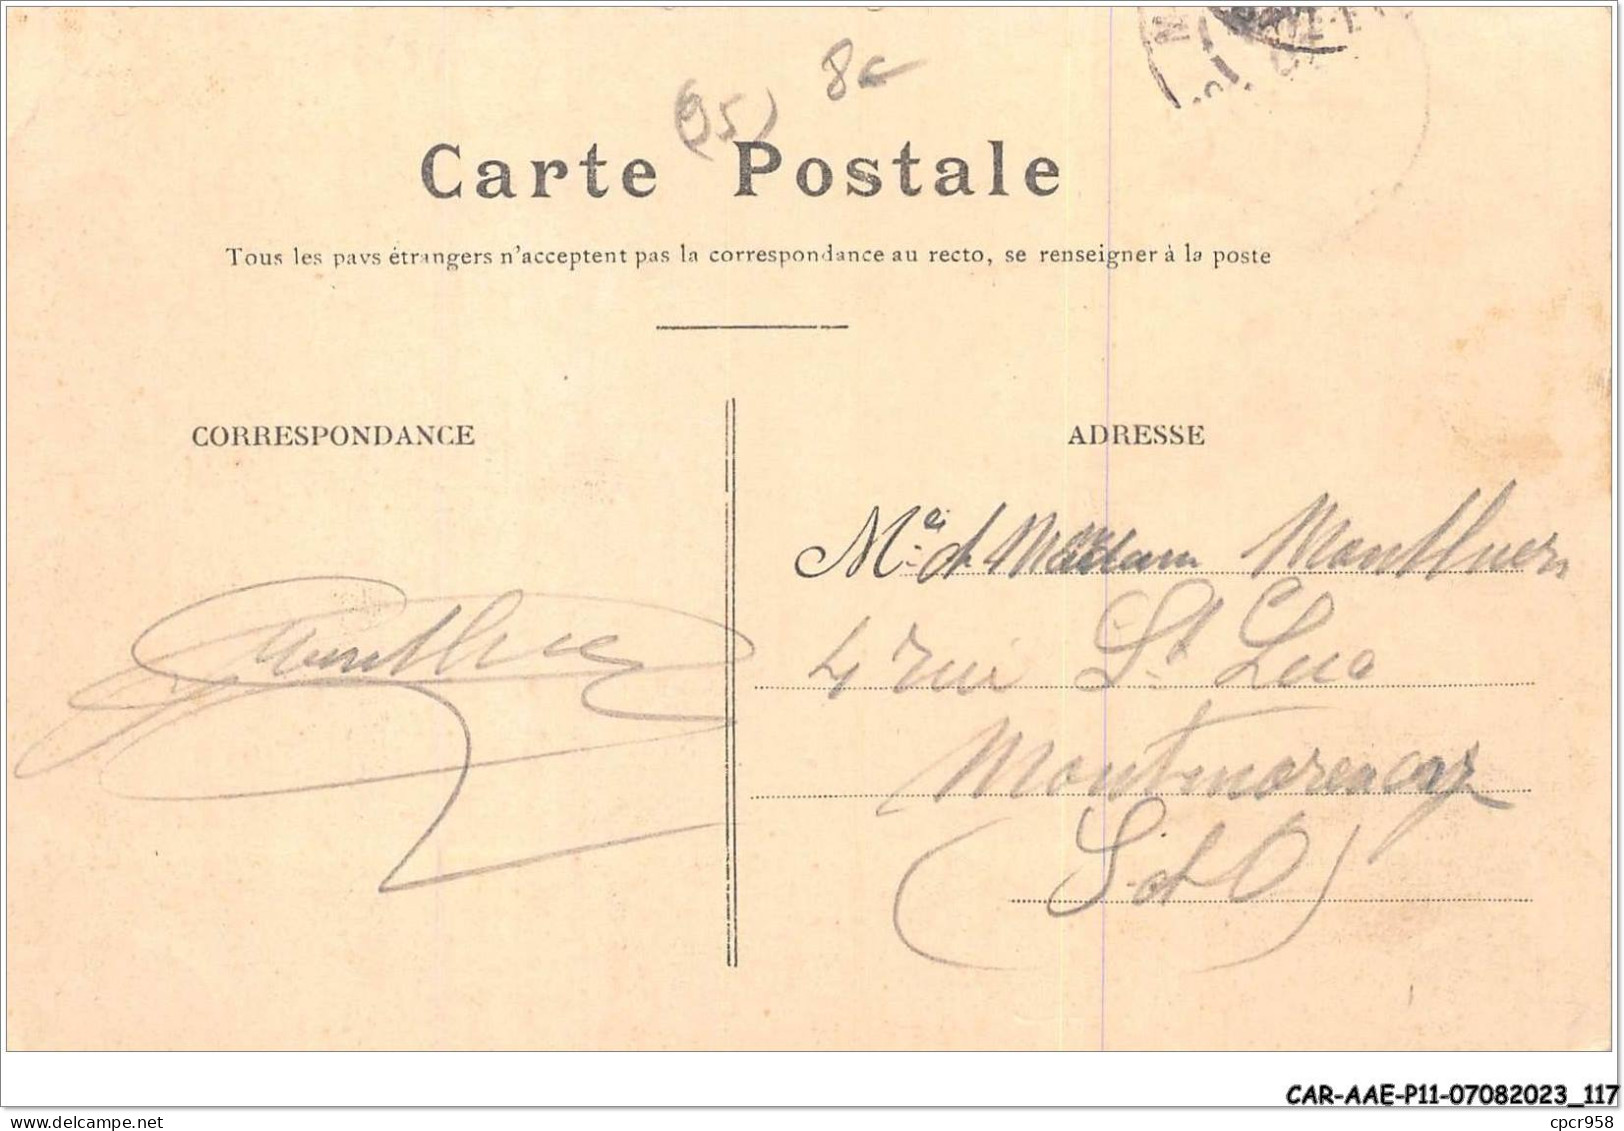 (95) 8€
Carte Postale
Tous les pays étrangers n'acceptent pas la correspondance au recto, se renseigner à la poste
CORRESPONDANCE
ADRESSE
Monthuers
4 rue St Luc
Montmorency
(S et O)
CAR-AAE-P11-07082023_117
cpcr958